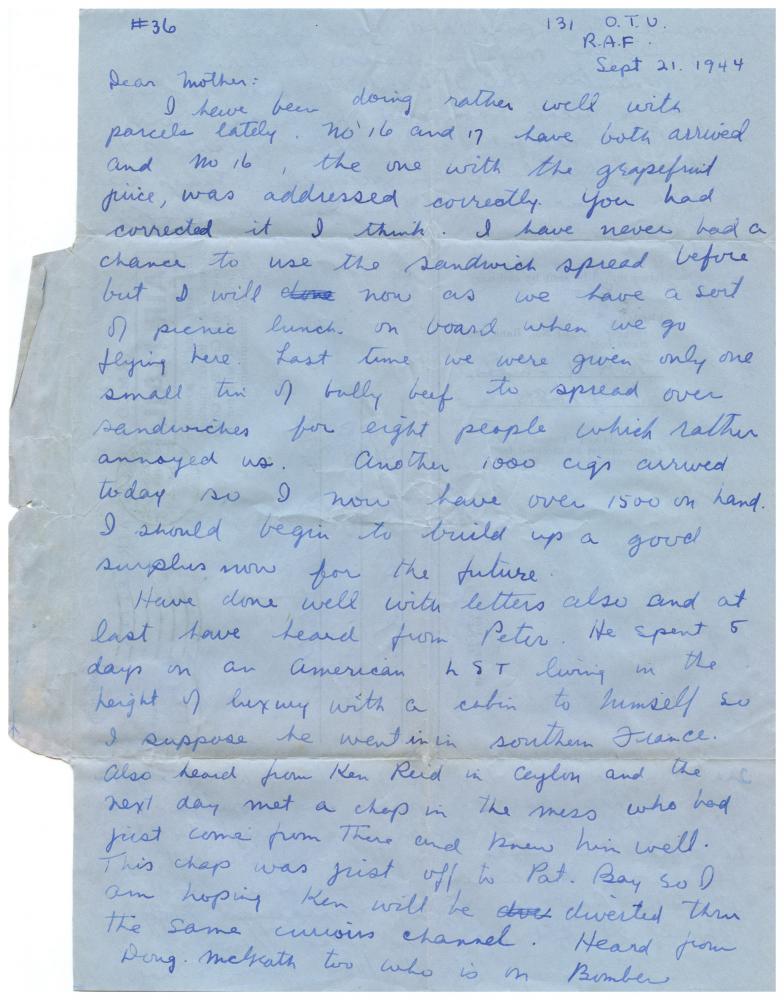 #36
131 O.T.U.
R.A.F.
Sept 21. 1944
Dear Mother:
I have been doing rather well with
parcels lately. No 16 and 17 have both arrived
and No 16, the one with the grapefruit
juice, was addressed correctly. You had
corrected it I think. I have never had a
chance to use the sandwich spread before
but I will done now as we have a sort
of picnic lunch on board when we go
flying here. Last time we were given only one
small tin of bully beef to spread over
sandwiches for eight people which rather
annoyed us. Another 1000 cigs arrived
today so I now have over 1500 on hand.
I should begin to build up a good
surplus now for the future.
Have done well with letters also and at
last have heard from Peter. He spent 5
days on an American LST living in the
height of luxury with a cabin to himself so
I suppose he went in in southern France.
Also heard from Ken Reid in Ceylon and the
next day met a chap in the mess who had
just come from there and knew him well.
This chap was just off to Pat. Bay so I
am hoping Ken will be diverted thru
the same curious channel. Heard from
Doug. too who is on Bomber